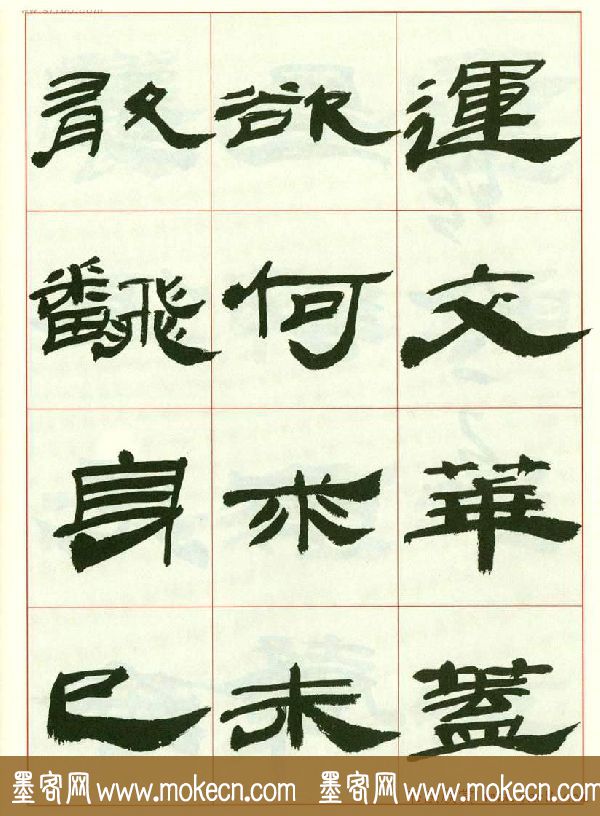 運交華蓋
欲何求未
敢飜身已
墨客网 www.mokecn.com 墨客网 www.mokecn.com